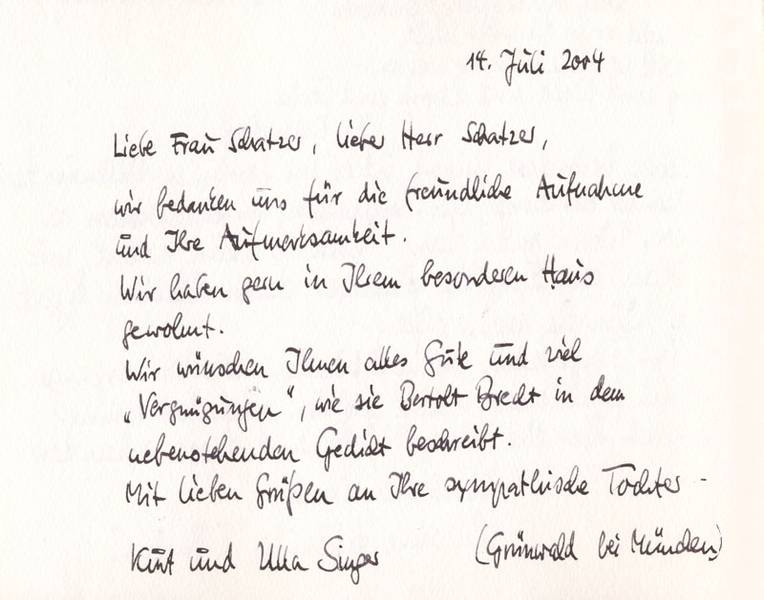 14. Juli 2004
Liebe Frau Schatzer, lieber Herr Schatzer,
wir bedanken uns für die freundliche Aufnahme
und Ihre Aufmerksamkeit.
Wir haben gern in Ihrem besonderen Haus
gewohnt.
Wir wünschen Ihnen alles Gute und viel
„Vergnügungen", wie sie Bertolt Brecht in dem
nebenstehenden Gedicht beschreibt.
Mit lieben Grüßen an Ihre sympathische Tochter -
Kurt und Ulla Singer (Grünwald bei München)